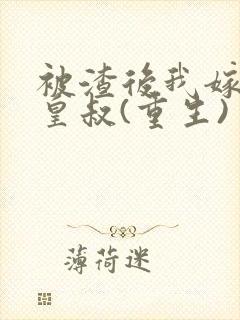 被渣後我嫁
皇叔(重生)
薄荷迷